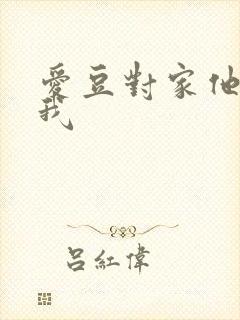 愛豆對家他
我
吕紅偉